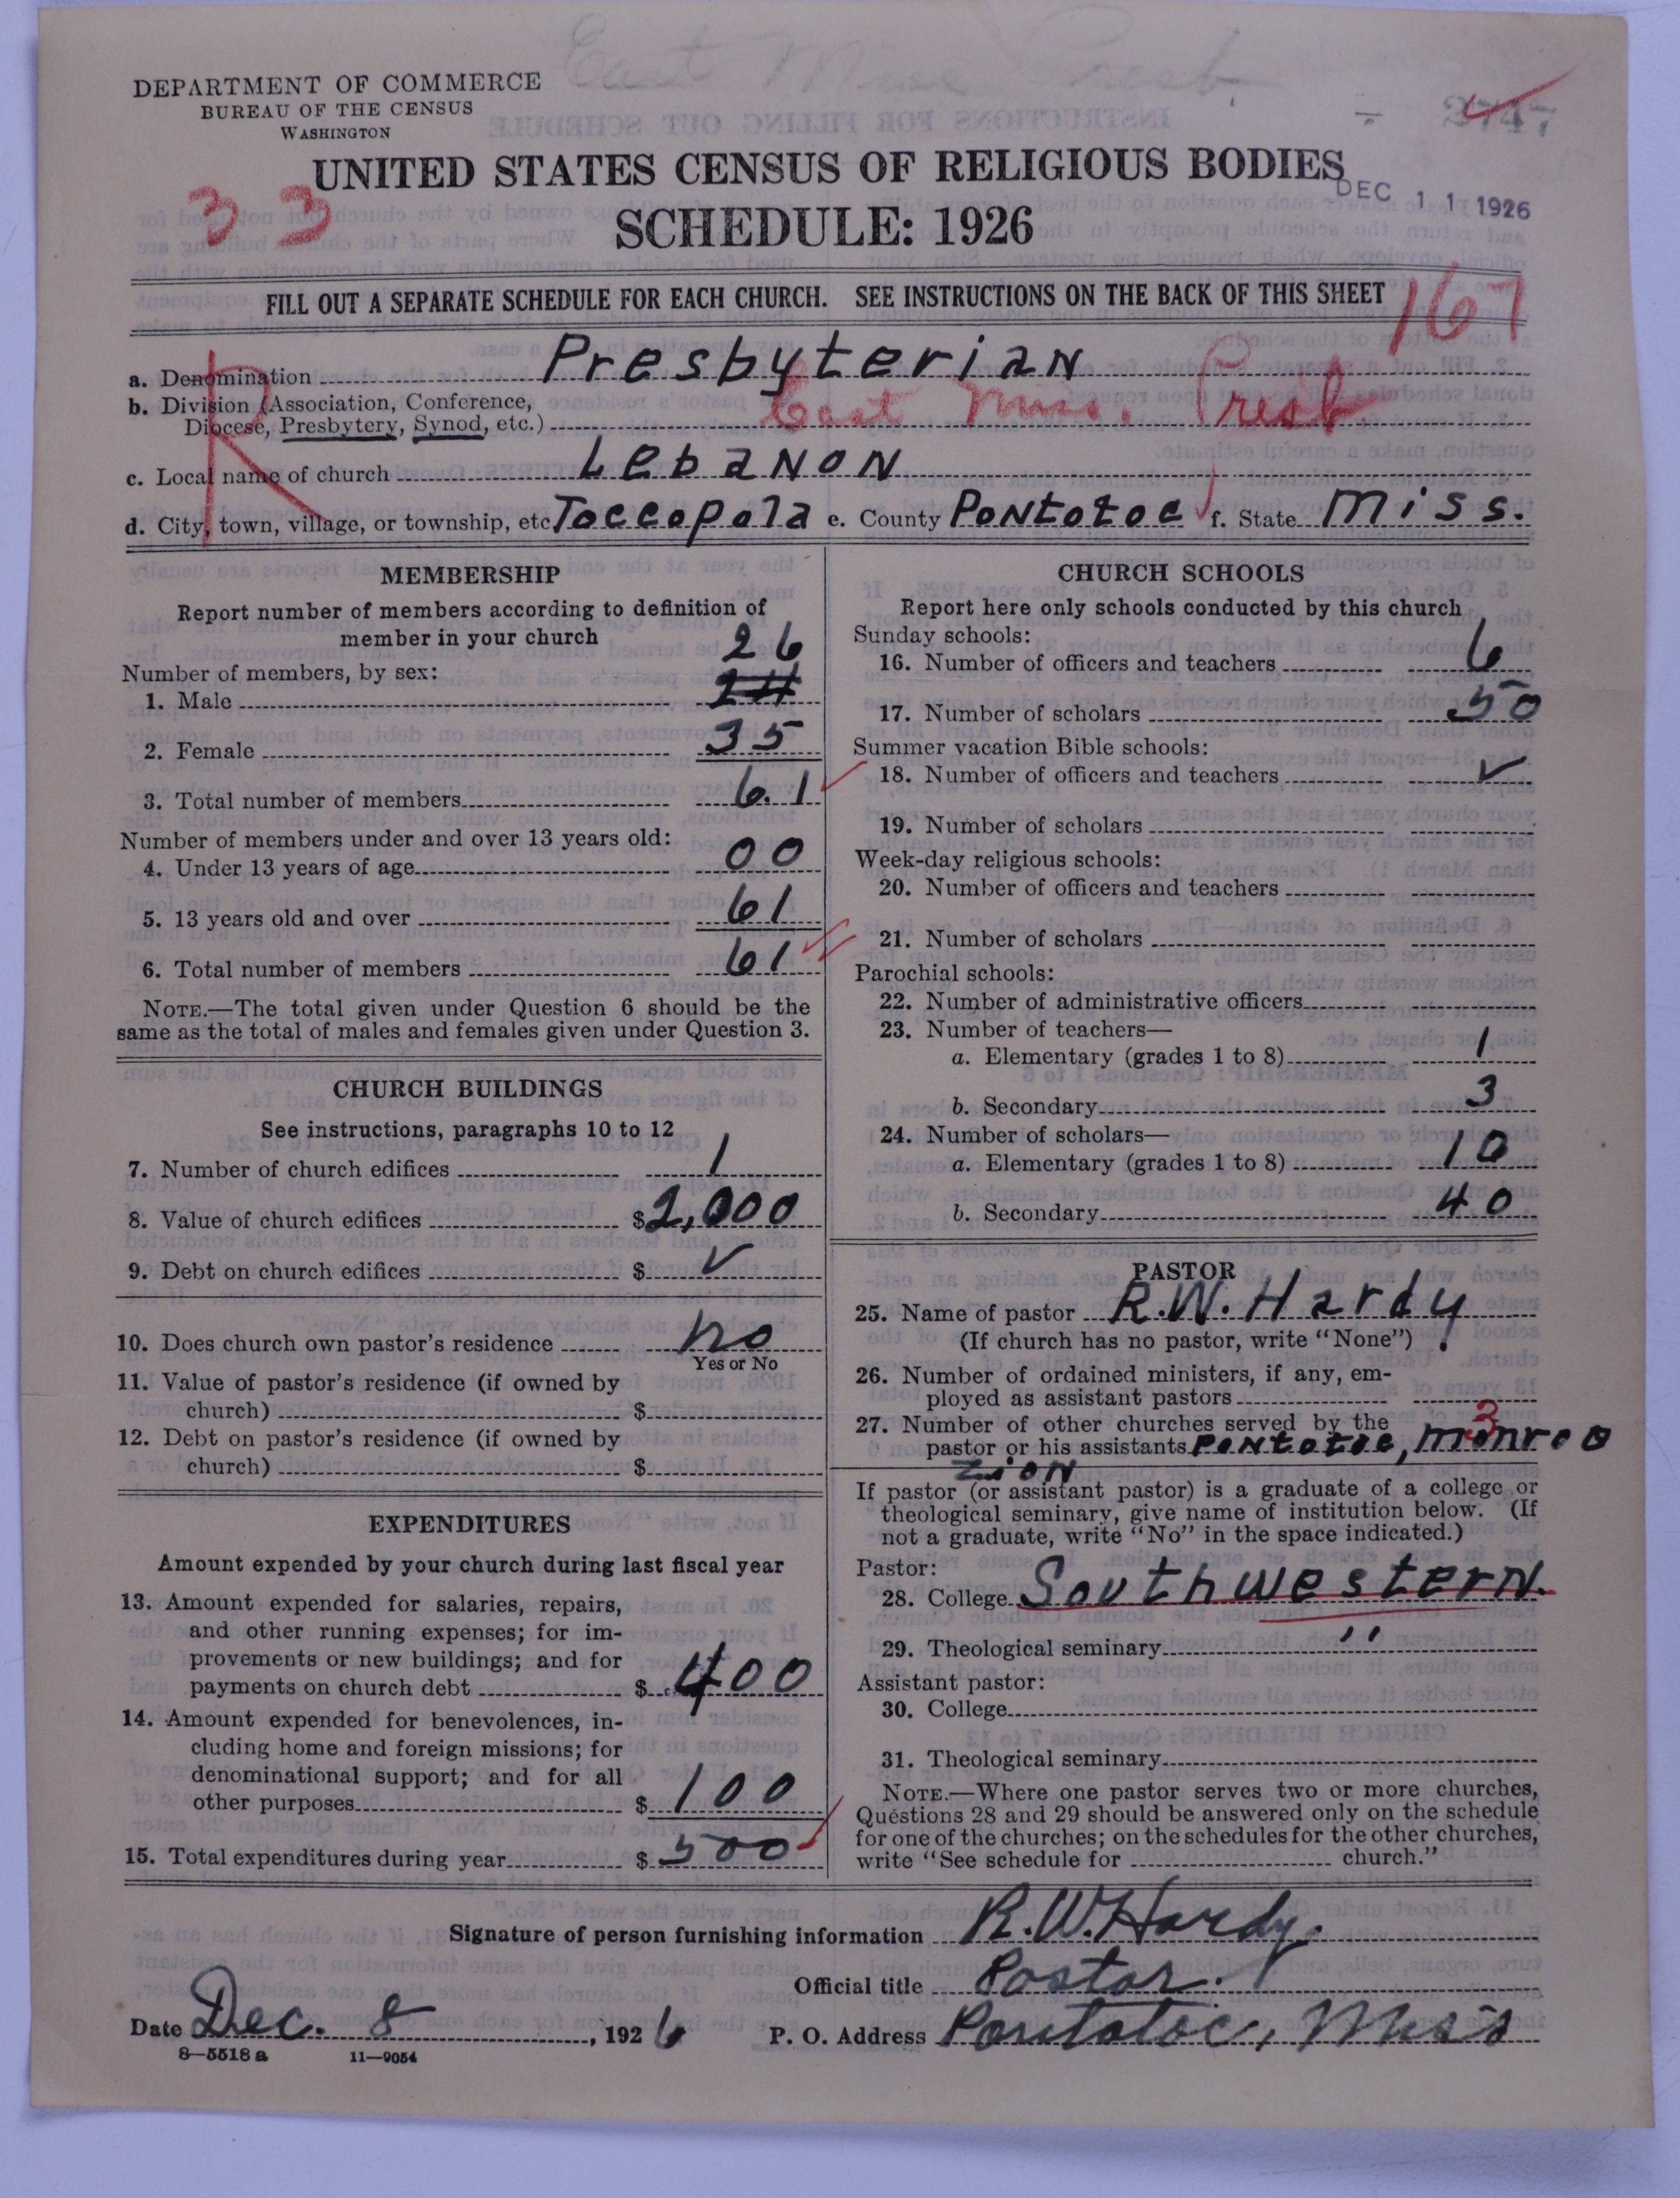 East Miss Presb.
DEPARTMENT OF COMMERCE
BUREAU OF THE CENSUS
WASHINGTON
2747
UNITED STATES CENSUS OF RELIGIOUS BODIES
DEC 11 1926
33
SCHEDULE: 1926
FILL OUT A SEPARATE SCHEDULE FOR EACH CHURCH. SEE INSTRUCTIONS ON THE BACK OF THIS SHEET
167
R
a. Denomination Presbyterian
b. Division (Association, Conference,
Diocese, Presbytery, Synod, etc.) East Miss. Presb
c. Local name of church Lebanon
d. City, town, village, or township, etc Toccopola e. County Pontotoc f. State Miss.
MEMBERSHIP
Report number of members according to definition of
member in your church
Number of members, by sex:
26
1. Male
2. Female 35
3. Total number of members 61
Number of members under and over 13 years old:
4. Under 13 years of age 00
5. 13 years old and over 61
6. Total number of members 61
NOTE.—The total given under Question 6 should be the
same as the total of males and females given under Question 3.
CHURCH BUILDINGS
See instructions, paragraphs 10 to 12
7. Number of church edifices 1
8. Value of church edifices $2,000
9. Debt on church edifices $ ✓
10. Does church own pastor's residence no
Yes or No
11. Value of pastor's residence (if owned by
church) $
12. Debt on pastor's residence (if owned by
church) $
EXPENDITURES
Amount expended by your church during last fiscal year
13. Amount expended for salaries, repairs,
and other running expenses; for im-
provements or new buildings; and for
payments on church debt $ 400
14. Amount expended for benevolences, in-
cluding home and foreign missions; for
denominational support; and for all
other purposes $ 100
15. Total expenditures during year $ 500
CHURCH SCHOOLS
Report here only schools conducted by this church
Sunday schools:
16. Number of officers and teachers 6
17. Number of scholars 50
Summer vacation Bible schools:
18. Number of officers and teachers ✓
19. Number of scholars
Week-day religious schools:
20. Number of officers and teachers
21. Number of scholars
Parochial schools:
22. Number of administrative officers
23. Number of teachers—
a. Elementary (grades 1 to 8) 1
b. Secondary 3
24. Number of scholars—
a. Elementary (grades 1 to 8) 10
b. Secondary 40
PASTOR
25. Name of pastor R.W. Hardy
(If church has no pastor, write "None")
26. Number of ordained ministers, if any, em-
ployed as assistant pastors
27. Number of other churches served by the 3
pastor or his assistants Pontotoc, Monroe
Zion
If pastor (or assistant pastor) is a graduate of a college or
theological seminary, give name of institution below. (If
not a graduate, write "No" in the space indicated.)
Pastor:
28. College Southwestern.
29. Theological seminary "
Assistant pastor:
30. College
31. Theological seminary
NOTE.—Where one pastor serves two or more churches,
Questions 28 and 29 should be answered only on the schedule
for one of the churches; on the schedules for the other churches,
write "See schedule for church."
Signature of person furnishing information R.W. Hardy.
Official title Pastor.
Date Dec. 8, 1926 P. O. Address Pontotoc, Miss
8—5518 a 11—9054